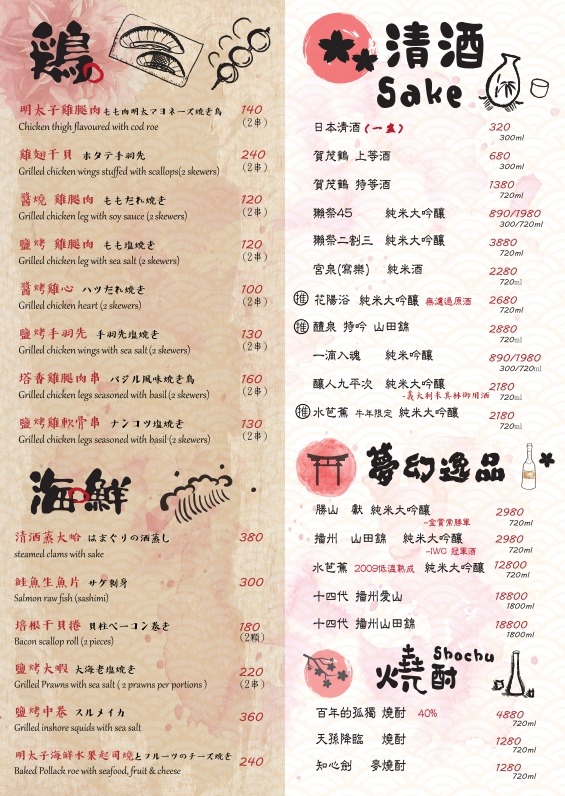 鶏
明太子雞腿肉 もも肉明太マヨネーズ焼き鳥 140
Chicken thigh flavoured with cod roe (2串)
雞翅干貝 ホタテ手羽先 240
Grilled chicken wings stuffed with scallops(2 skewers) (2串)
醬燒 雞腿肉 ももだれ焼き 120
Grilled chicken leg with soy sauce (2 skewers) (2串)
鹽烤 雞腿肉 もも塩焼き 120
Grilled chicken leg with sea salt (2 skewers) (2串)
醬烤雞心 ハツだれ焼き 100
Grilled chicken heart (2 skewers) (2串)
鹽烤手羽先 手羽先塩焼き 130
Grilled chicken wings with sea salt (2 skewers) (2串)
塔香雞腿肉串 バジル風味焼き鳥 160
Grilled chicken legs seasoned with basil (2 skewers) (2串)
鹽烤雞軟骨串 ナンコツ塩焼き 130
Grilled chicken legs seasoned with basil (2 skewers) (2串)
海の鮮
清酒蒸大蛤 はまぐりの酒蒸し 380
steamed clams with sake
鮭魚生魚片 サケ刺身 300
Salmon raw fish (sashimi)
培根干貝捲 貝柱ベーコン巻き 180
Bacon scallop roll (2 pieces) (2顆)
鹽烤大蝦 大海老塩焼き 220
Grilled Prawns with sea salt ( 2 prawns per portions ) (2串)
鹽烤中卷 スルメイカ 360
Grilled inshore squids with sea salt
明太子海鮮水果起司燒とフルーツのチーズ焼き 240
Baked Pollack roe with seafood, fruit & cheese
清酒
Sake
日本清酒(一壺) 320
300ml
賀茂鶴 上等酒 680
300ml
賀茂鶴 特等酒 1380
720ml
獺祭45 純米大吟釀 890/1980
300/720ml
獺祭二割三 純米大吟釀 3880
720ml
宮泉(寫樂) 純米酒 2280
720ml
推 花陽浴 純米大吟釀 無濾過原酒 2680
720ml
推 醴泉 特吟 山田錦 2880
720ml
一滴入魂 純米吟釀 890/1980
300/720ml
釀人九平次 純米大吟釀 2180
-義大利米其林御用酒 720ml
推 水芭蕉 牛年限定 純米吟釀 2180
720ml
夢幻逸品
勝山 獻 純米大吟釀 2980
-金賞常勝軍 720ml
播州 山田錦 純米大吟釀 2980
-IWC 冠軍酒 720ml
水芭蕉 2009低溫熟成 純米大吟釀 12800
720ml
十四代 播州愛山 18800
1800ml
十四代 播州山田錦 18800
1800ml
燒酎 Shochu
百年的孤獨 燒酎 40% 4880
720ml
天孫降臨 燒酎 1280
720ml
知心劍 麥燒酎 1280
720ml